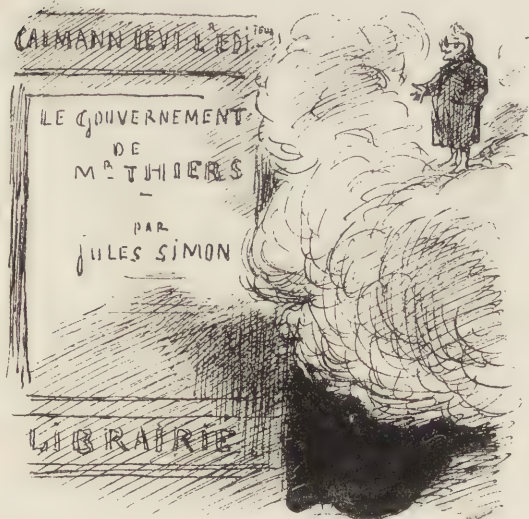 CALMANN LEVY L'R EDITEUR
LE GOUVERNEMENT
DE
MR THIERS
PAR
JULES SIMON
LIBRAIRIE